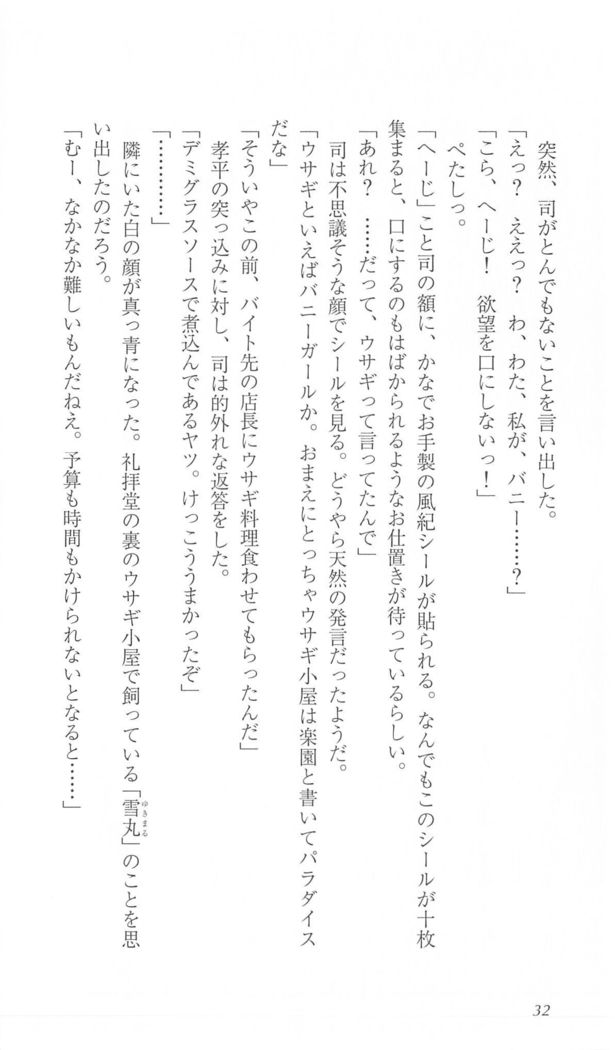 突然、司がとんでもないことを言い出した。
「えっ？　ええっ？　わ、わた、私が、バニー……？」
「こら、へーじ！　欲望を口にしないっ！」
ぺたしっ。
「へーじ」こと司の額に、かなでお手製の風紀シールが貼られる。なんでもこのシールが十枚
集まると、口にするのもはばかられるようなお仕置きが待っているらしい。
「あれ？　……だって、ウサギって言ってたんで」
司は不思議そうな顔でシールを見る。どうやら天然の発言だったようだ。
「ウサギといえばバニーガールか。おまえにとっちゃウサギ小屋は楽園と書いてパラダイス
だな」
「そういやこの前、バイト先の店長にウサギ料理食わせてもらったんだ」
孝平の突っ込みに対し、司は的外れな返答をした。
「デミグラスソースで煮込んであるヤツ。けっこううまかったぞ」
「…………」
隣にいた白の顔が真っ青になった。礼拝堂の裏のウサギ小屋で飼っている「雪丸」のことを思
ゆきまる
い出したのだろう。
「むー、なかなか難しいもんだねえ。予算も時間もかけられないとなると……」
32